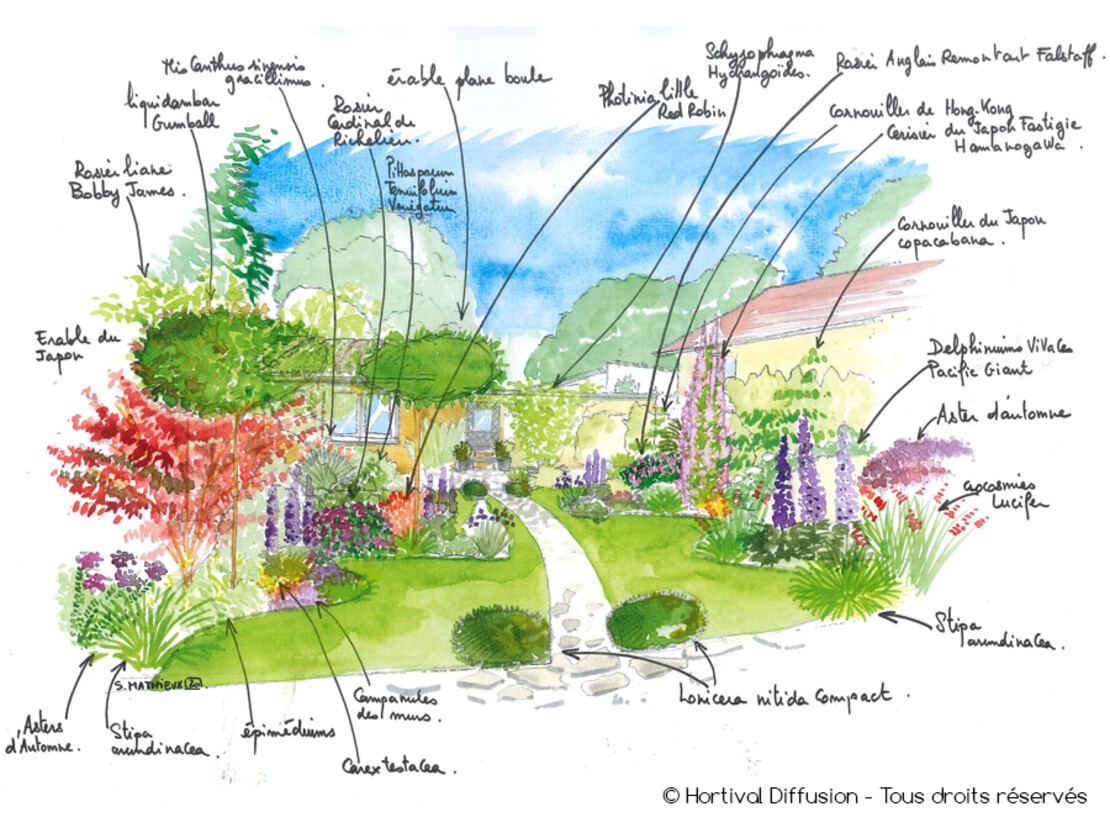 Mis Canthus sinensis
gracillimus.
érable plane boule
Schyzophragma
Hydrangoïdes.
Rosier Anglais Remontant Falstaff.
liquidambar
Gumball
Rosier
Cardinal de
Richelieu.
Photinia little
Red Robin
Cornouiller de Hong-Kong
Cerisier du Japon Fastigie
Hamanogawa.
Rosier liane
Bobby James.
Pittosporum
Tenuifolium
Variegatum
Cornouiller du Japon
copacabana.
Erable du
Japon
Delphiniums Vivaces
Pacific Giant
Aster d'automne
crocosmies
Lucifer
Stipa
arundinacea.
S. MATHIEUX
Lonicera nitida Compact.
Campanules
des murs.
Asters
d'Automne.
Stipa
arundinacea.
épimédiums
Carex testacea.
© Hortival Diffusion - Tous droits réservés